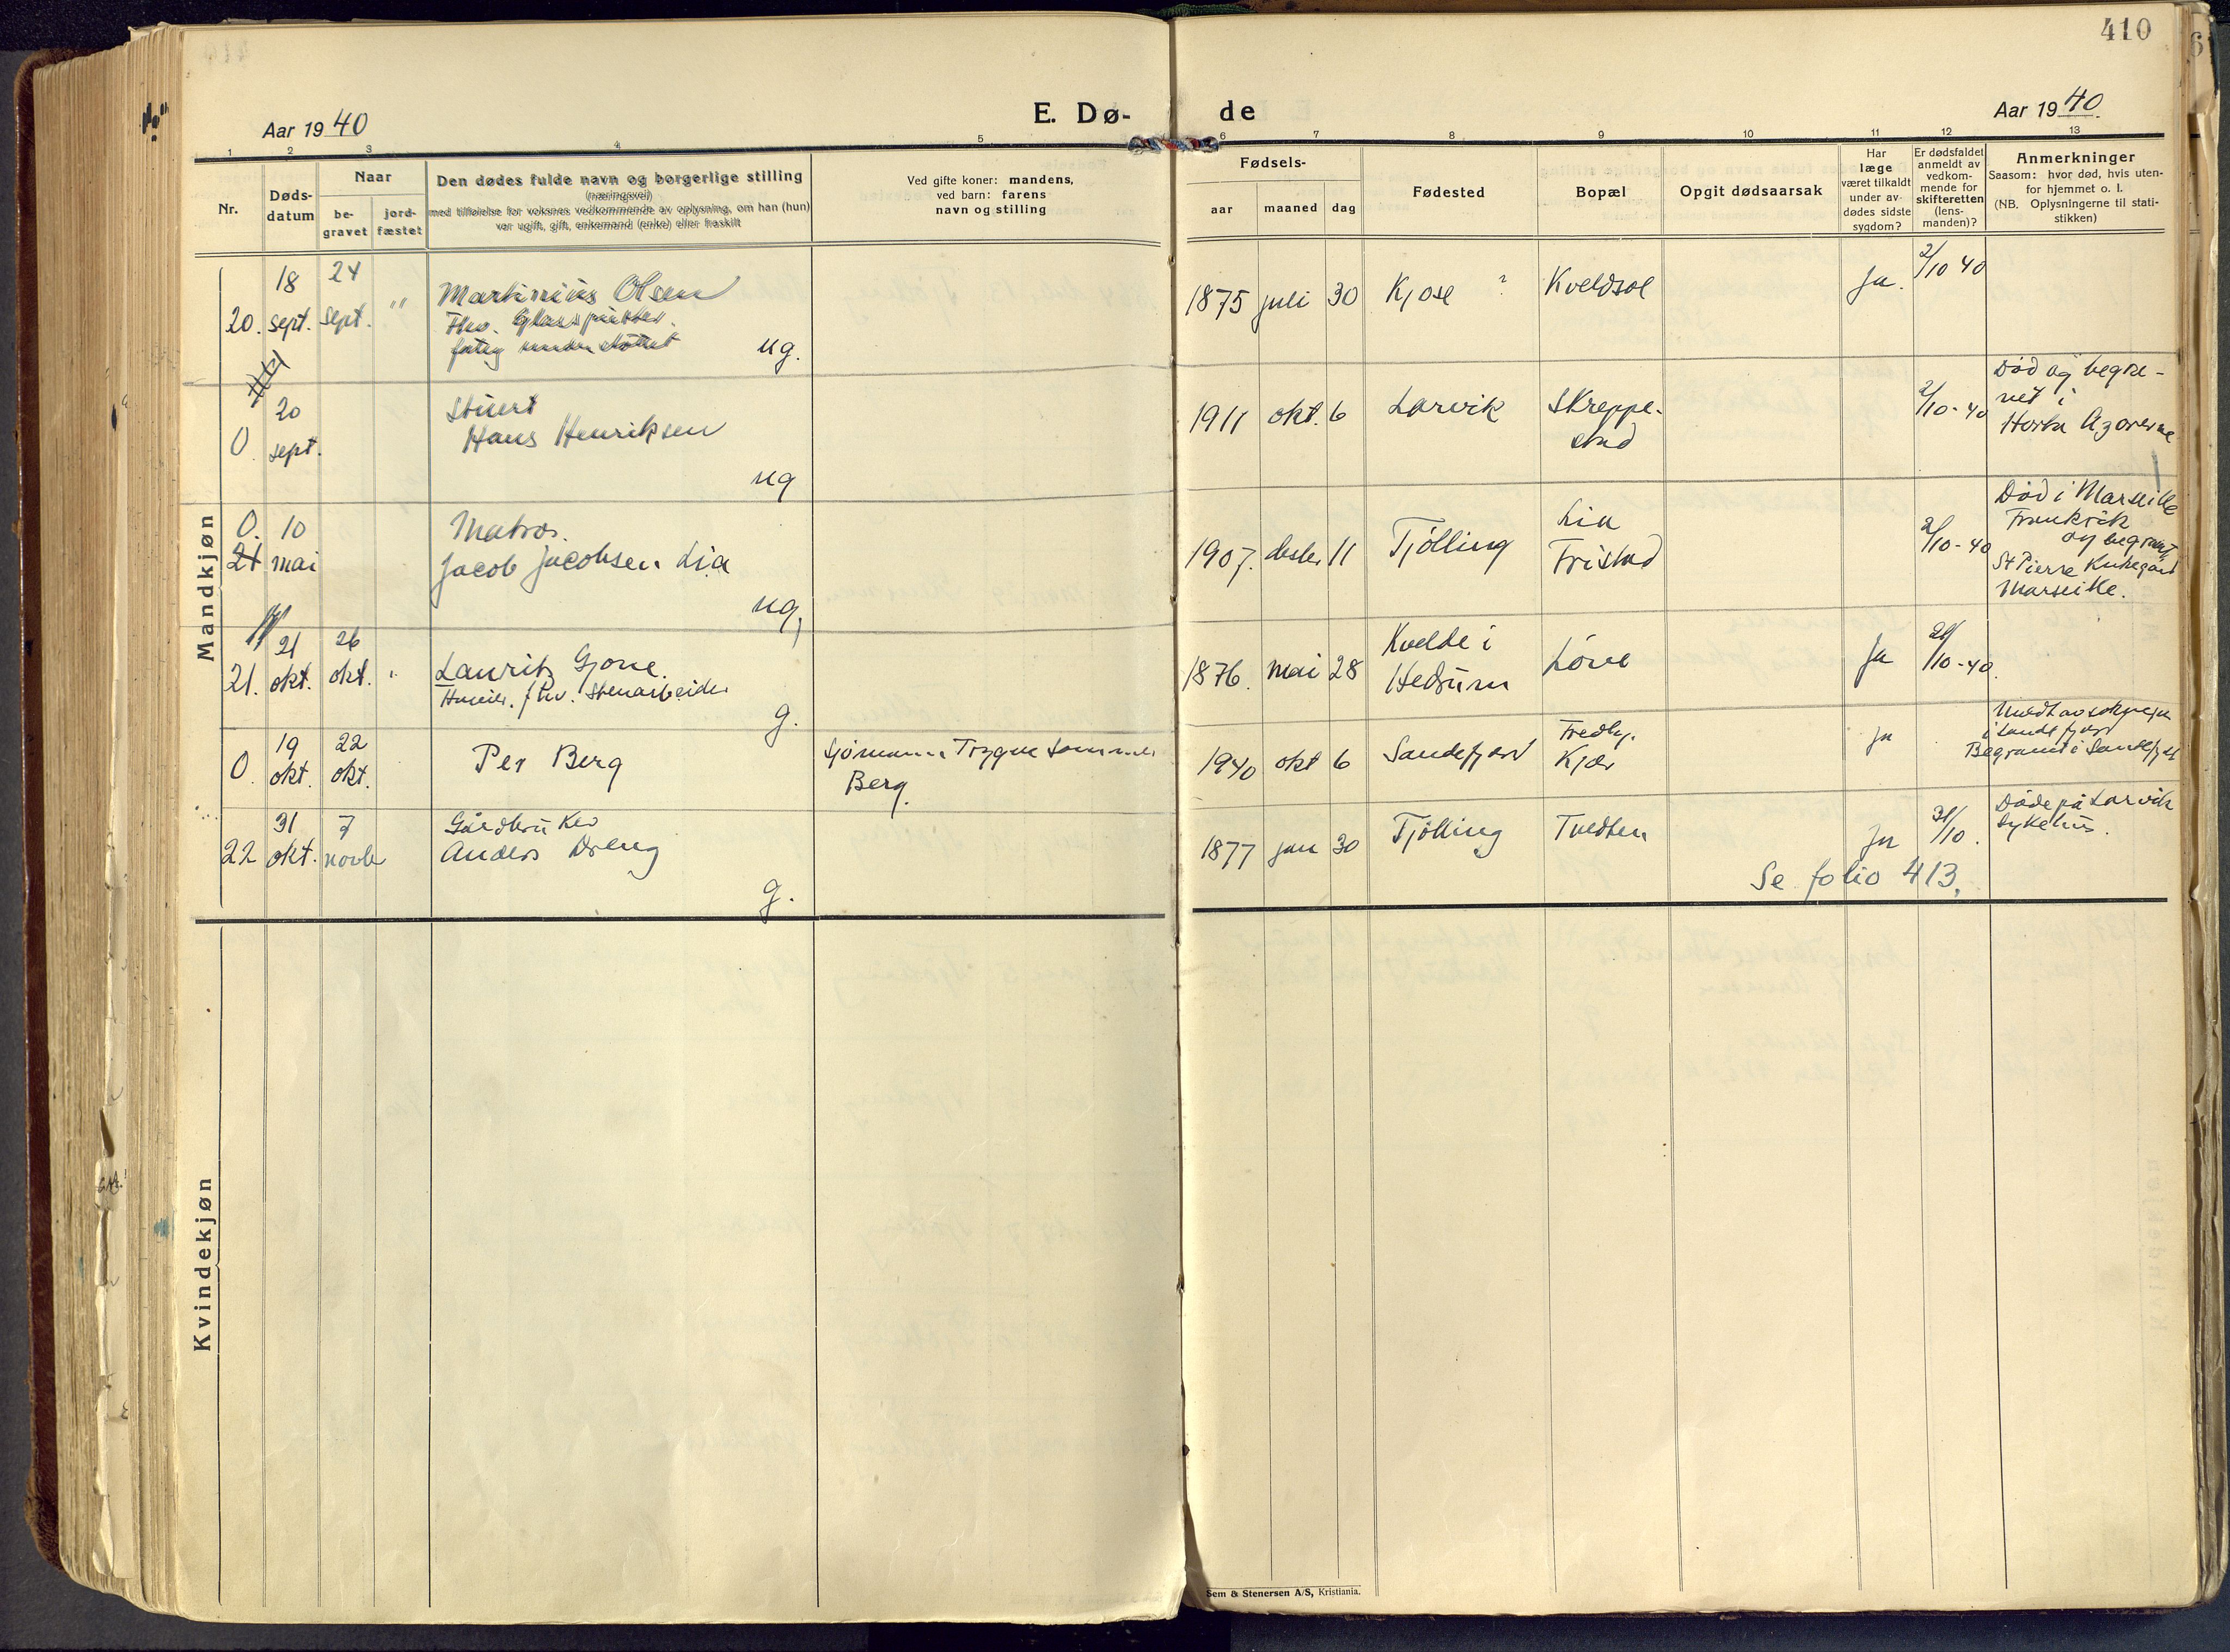 410
Aar 1940
E. Dø-
de
Aar 1940
1 2 3 4 5 6 7 8 9 10 11 12 13
Nr.
Døds-
datum
Naar
be-
gravet
jord-
fæstet
Den dødes fulde navn og borgerlige stilling
(næringsvei)
med tilføielse for voksnes vedkommende av oplysning, om han (hun)
var ugift, gift, enkemand (enke) eller fraskilt
Ved gifte koner: mandens,
ved barn: farens
navn og stilling
Fødsels-
aar
maaned
dag
Fødested
Bopæl
Opgit dødsaarsak
Har
læge
været tilkaldt
under av-
dødes sidste
sygdom?
Er dødsfaldet
anmeldt av
vedkom-
mende for
skifteretten
(lens-
manden)?
Anmerkninger
Saasom: hvor død, hvis uten-
for hjemmet o. l.
(NB. Oplysningerne til stati-
stikken)
Mandkjøn
20. 18 sept. 24 sept. "
Martinius Olsen
Fhv. Glasspuster.
fattig understøttet
ug.
1875 juli 30 Kjose ? Kveldsol Ja. 2/10 40
0. 20 sept.
Stuert
Hans Henriksen
ug
1911 okt. 6 Larvik Skreppe-
stad
2/10-40
Død og begra-
vet i
Horta Azorerne
0. 21 10 mai
Matros.
Jacob Jacobsen Lia
ug,
1907. desbr 11 Tjölling Lia
Fristad
2/10-40
Død i Marseille
Frankrik
og begravet
St Pierre Kirkegård
Marseille.
21. 21 okt. 26 okt. "
Lauritz Gjone.
fhv. Stenarbeider
g.
1876. mai 28 Kvelde i
Hedrum
Löve
Ja 21/10-40.
0. 19 okt. 22 okt.
Per Berg
Sjømann Trygve
Berg.
1940 okt 6 Sandefjord Fredby.
Kjær
Ja
i Sandefjord
Begravet i Sandefjord
22 31 okt. 7 novbr
Gårdbruker
Anders Dreng
g.
1877 jan 30 Tjölling Tvedten Ja 31/10.
Döde på Larvik
Sykehus.
Se folio 413.
Kvindekjøn
Sem & Stenersen A/S, Kristiania.